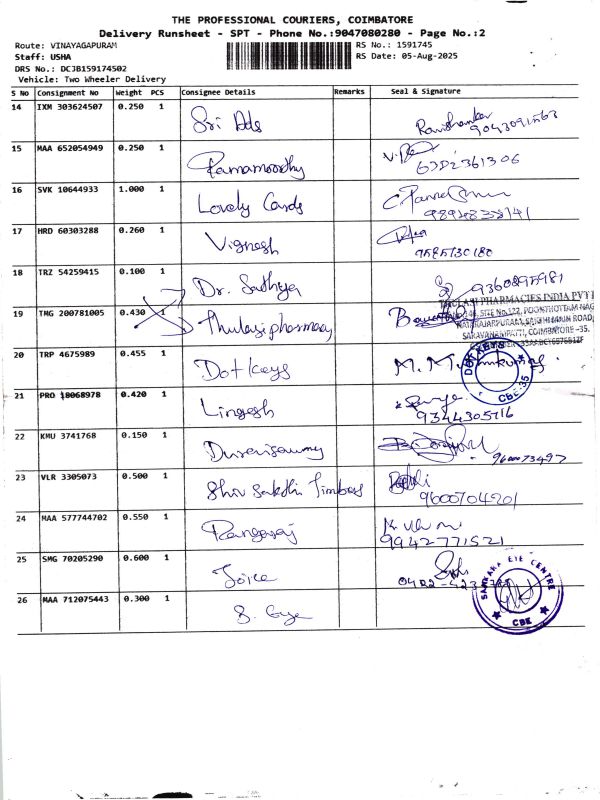 THE PROFESSIONAL COURIERS, COIMBATORE
Delivery Runsheet - SPT - Phone No.:9047080280 - Page No.:2
Route: VINAYAGAPURAM
Staff: USHA
DRS No.: DCJB159174502
Vehicle: Two Wheeler Delivery
RS No.: 1591745
RS Date: 05-Aug-2025
S No Consignment No Weight PCS Consignee Details Remarks Seal & Signature
14 IXM 303624507 0.250 1 Sri Ads
15 MAA 652054949 0.250 1 Ramamoorthy
16 SVK 10644933 1.000 1 Lovely Cards
17 HRD 60303288 0.260 1 Vignesh
18 TRZ 54259415 0.100 1 Dr. Sathya 9360895981
19 TMG 200781005 0.430 1 Thulasi pharmacy
PHARMACIES INDIA PVT
SARAVANAMPATTI, COIMBATORE -35.
20 TRP 4675989 0.455 1 Dot keys
DOT KEYS
CBE-35
21 PRO 18068978 0.420 1 Lingesh
9344305716
22 KMU 3741768 0.150 1 Duraisamy
9600073497
23 VLR 3305073 0.500 1 Shiv Sakthi Timbers
9600704201
24 MAA 577744702 0.550 1 Rangaraj
9942771521
25 SMG 70205290 0.600 1 Joice
26 MAA 712075443 0.300 1 S. Eye
SANKARA EYE CENTRE
CBE